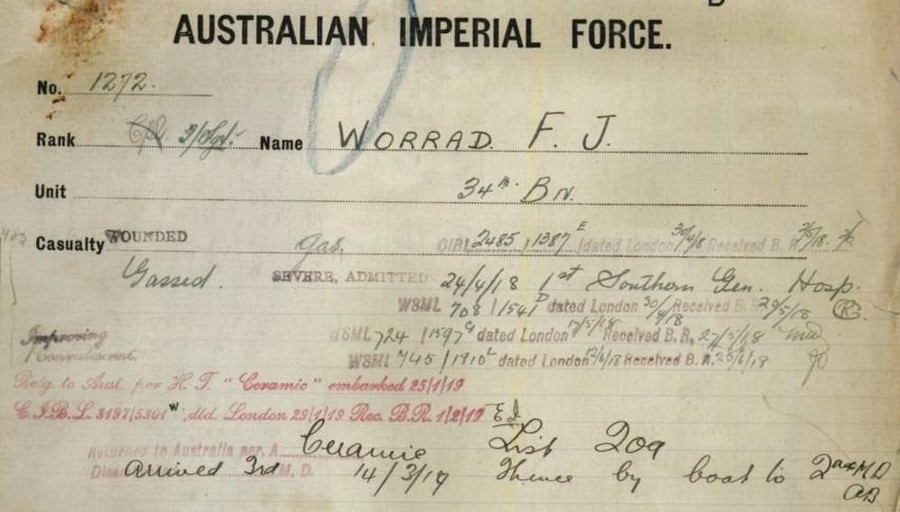 AUSTRALIAN IMPERIAL FORCE.
No. 1272.
Rank Cpl 2/Sgt. Name WORRAD. F. J.
Unit 34th Bn.
Casualty WOUNDED gas. CIBL 2485 1387 E dated London 30/4/8 Received B. R.
Gassed. SEVERE, ADMITTED 24/4/18 1st Southern Gen. Hosp.
WSML 708 1541 D dated London 30/4/18 Received B. R. 29/5/18
Improving WSML 724 1597 G dated London 17/5/18 Received B. R. 27/5/18
Convalescent. WSML 745 1910 L dated London Received B. R. 25/6/18
Ret'g to Aust. per H. T. "Ceramic" embarked 25/1/19
C.I.B.L. 3197/5301 W dtd. London 29/1/19 Rec. B.R. 1/2/19
Returned to Australia per A. Ceramic List 209
Arrived 3rd M. D. 14/3/19 Thence by boat to 2nd M D